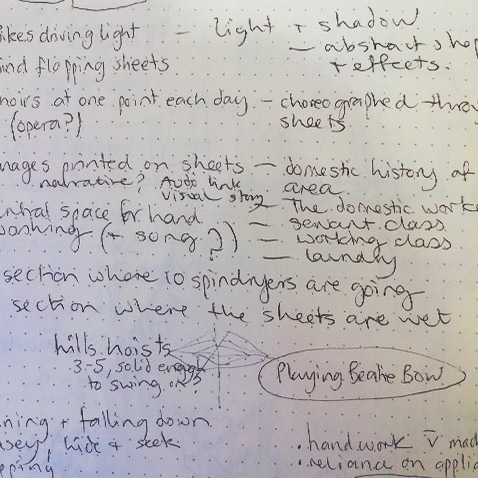 ikes driving light — light + shadow
— abstract shap
ind flapping sheets + effects.
hoirs at one point each day — choreographed throu
(opera?) sheets
mages printed on sheets — domestic history of
narrative? Audio link area
Visual story — The domestic worke
ntral space for hand — servant class
washing (+ song?) — working class
— laundry
section where 10 spindryers are going
section where the sheets are wet
hills hoists
3-5, solid enough
to swing on?
Playing Beatie Bow
ning + falling down
asey, hide + seek
pping
• handwork v mach
• reliance on applia